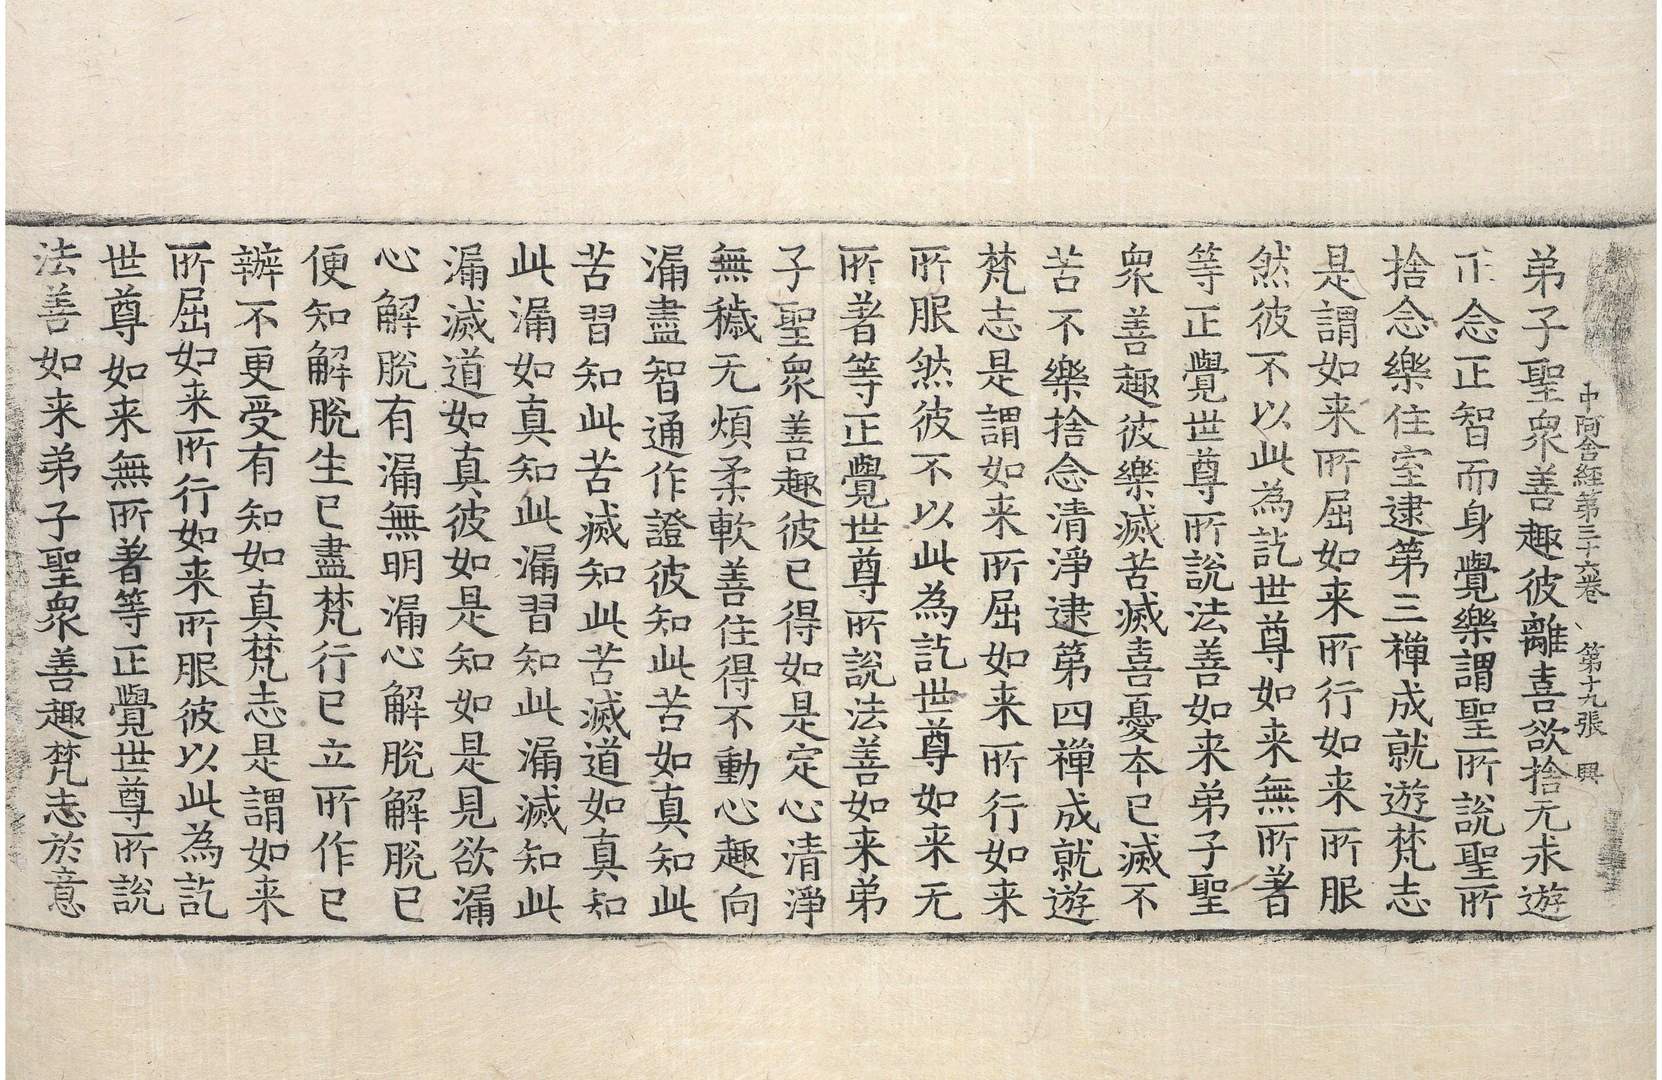 中阿含經第三十六卷 第十九張 興
弟子聖衆善趣彼離喜欲捨无求遊
正念正智而身覺樂謂聖所說聖所
捨念樂住室逮第三禪成就遊梵志
是謂如来所屈如来所行如来所服
然彼不以此為訖世尊如来無所著
等正覺世尊所說法善如来弟子聖
衆善趣彼樂滅苦滅喜憂夲已滅不
苦不樂捨念清淨逮第四禪成就遊
梵志是謂如来所屈如来所行如来
所服然彼不以此為訖世尊如来无
所著等正覺世尊所說法善如来弟
子聖衆善趣彼已得如是定心清淨
無穢无煩柔軟善住得不動心趣向
漏盡智通作證彼知此苦如真知此
苦習知此苦滅知此苦滅道如真知
此漏如真知此漏習知此漏滅知此
漏滅道如真彼如是知如是見欲漏
心解脫有漏無明漏心解脫解脫已
便知解脫生已盡梵行已立所作已
辦不更受有知如真梵志是謂如来
所屈如来所行如来所服彼以此為訖
世尊如来無所著等正覺世尊所說
法善如来弟子聖衆善趣梵志於意